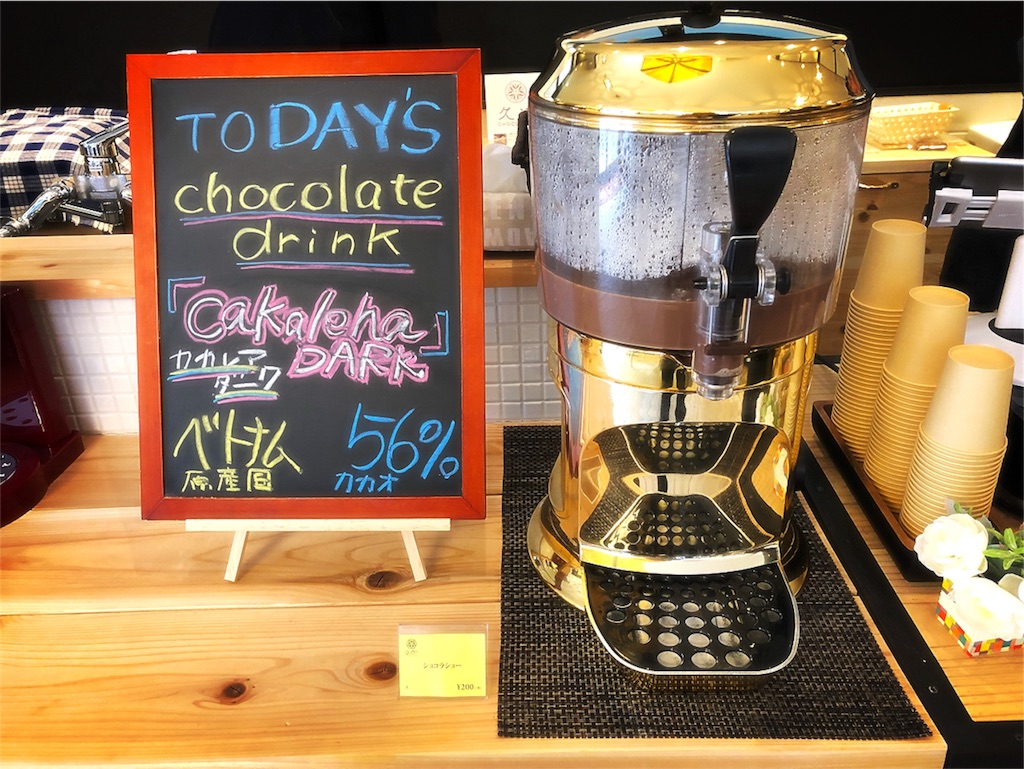 TODAY'S
chocolate
drink
「Cakaleha
DARK」
カカレア
ダーク
ベトナム
原産国
56%
カカオ
久
ショコラショー
¥200